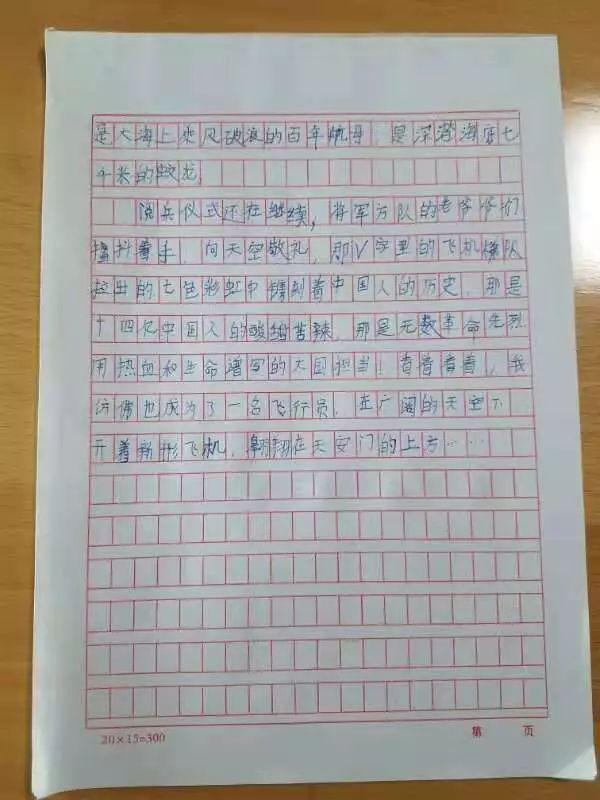 是大海上乘风破浪的百年航母，是深潜海底七
千米的蛟龙。
阅兵仪式还在继续，将军方队的老爷爷们
抖着手，向天空敬礼，那V字型的飞机梯队
拉出的七色彩虹中镌刻着中国人的历史，那是
十四亿中国人的酸甜苦辣，那是无数革命先烈
用热血和生命谱写的大国担当！看着看着，我
仿佛也成为了一名飞行员，在广阔的天空下
开着新形飞机，翱翔在天安门的上方……
20×15=300
第 页